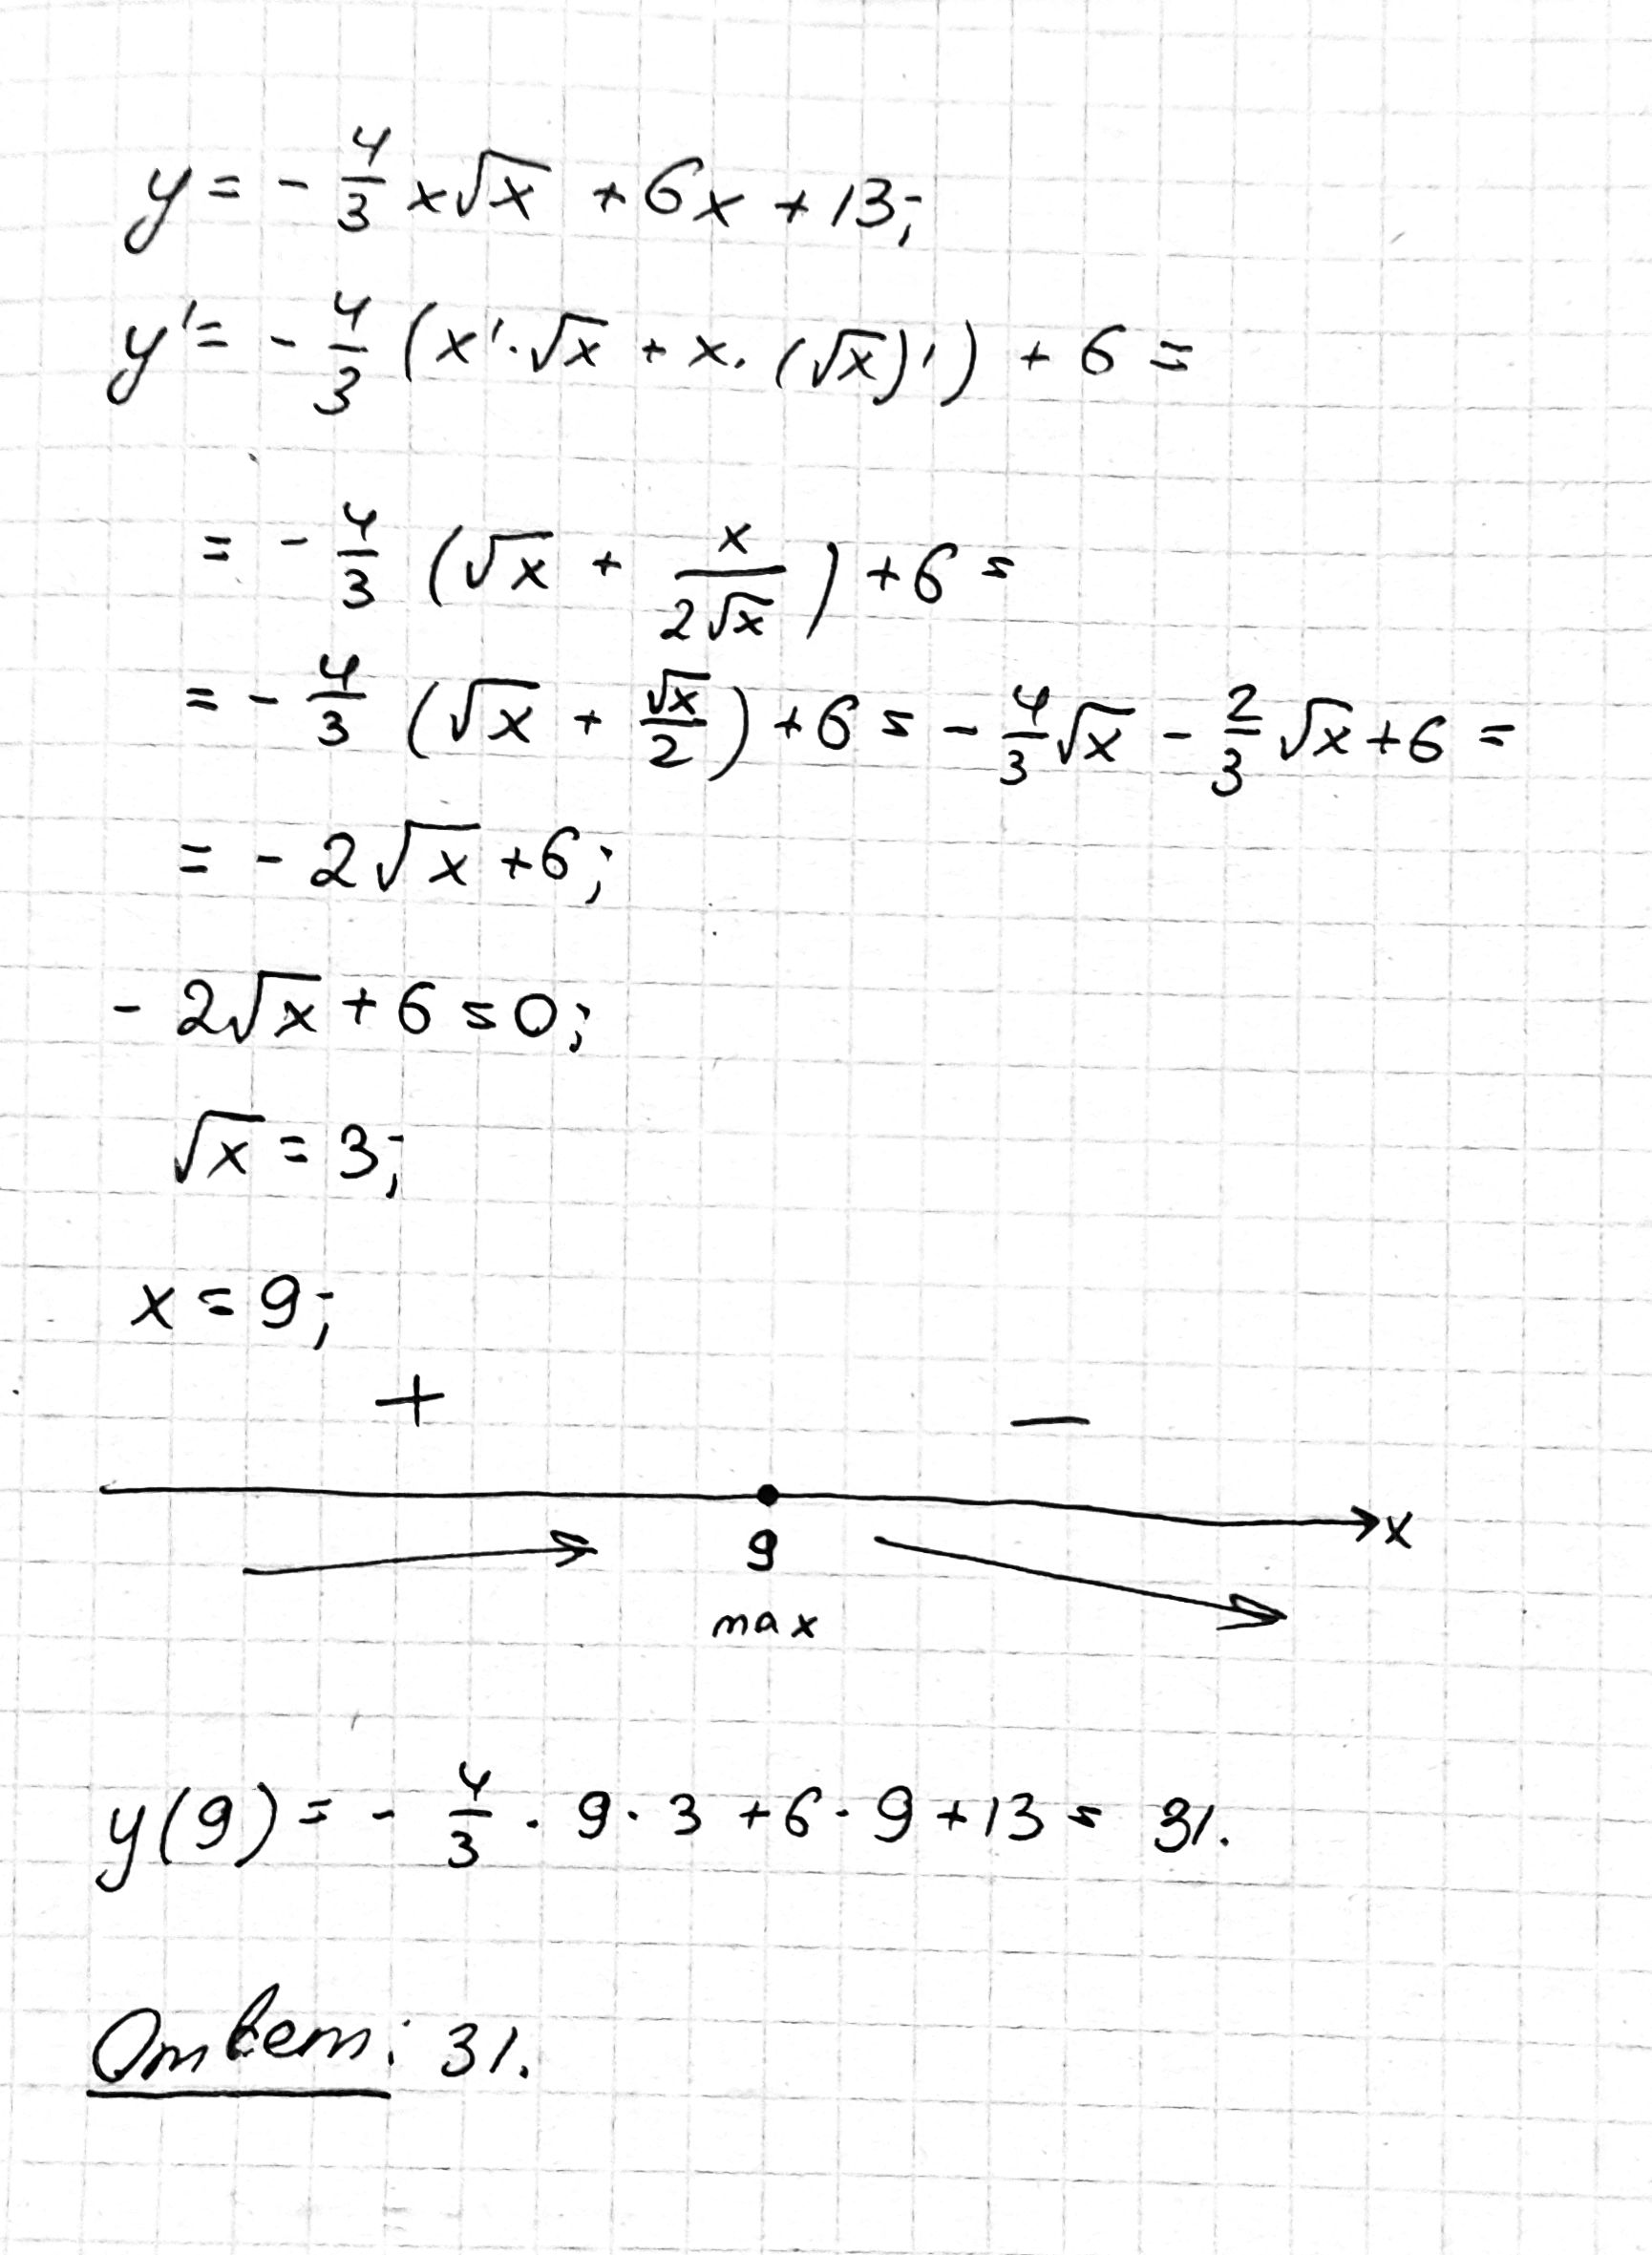 y = - 4/3 x√x + 6x + 13;
y' = - 4/3 (x'·√x + x·(√x)') + 6 =
= - 4/3 (√x + x/(2√x)) + 6 =
= - 4/3 (√x + √x/2) + 6 = - 4/3 √x - 2/3 √x + 6 =
= - 2√x + 6;
- 2√x + 6 = 0;
√x = 3;
x = 9;
+ −
9 x
max
y(9) = - 4/3 · 9 · 3 + 6 · 9 + 13 = 31.
Ответ: 31.